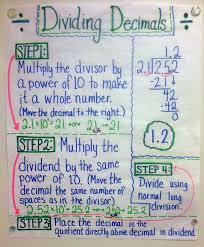 ÷ Dividing Decimals ÷
STEP 1:
Multiply the divisor by
a power of 10 to make
it a whole number.
(Move the decimal to the right.)
2.1 × 10 = 21
STEP 2: Multiply the
dividend by the same
power of 10. (Move the
decimal the same number of
spaces as in the divisor)
2.52 × 10 = 25.2
STEP 3: Place the decimal in the
quotient directly above decimal in dividend
1.2
2.1 2.52
-21
42
-42
0
1.2
STEP 4:
Divide using
normal long
division.